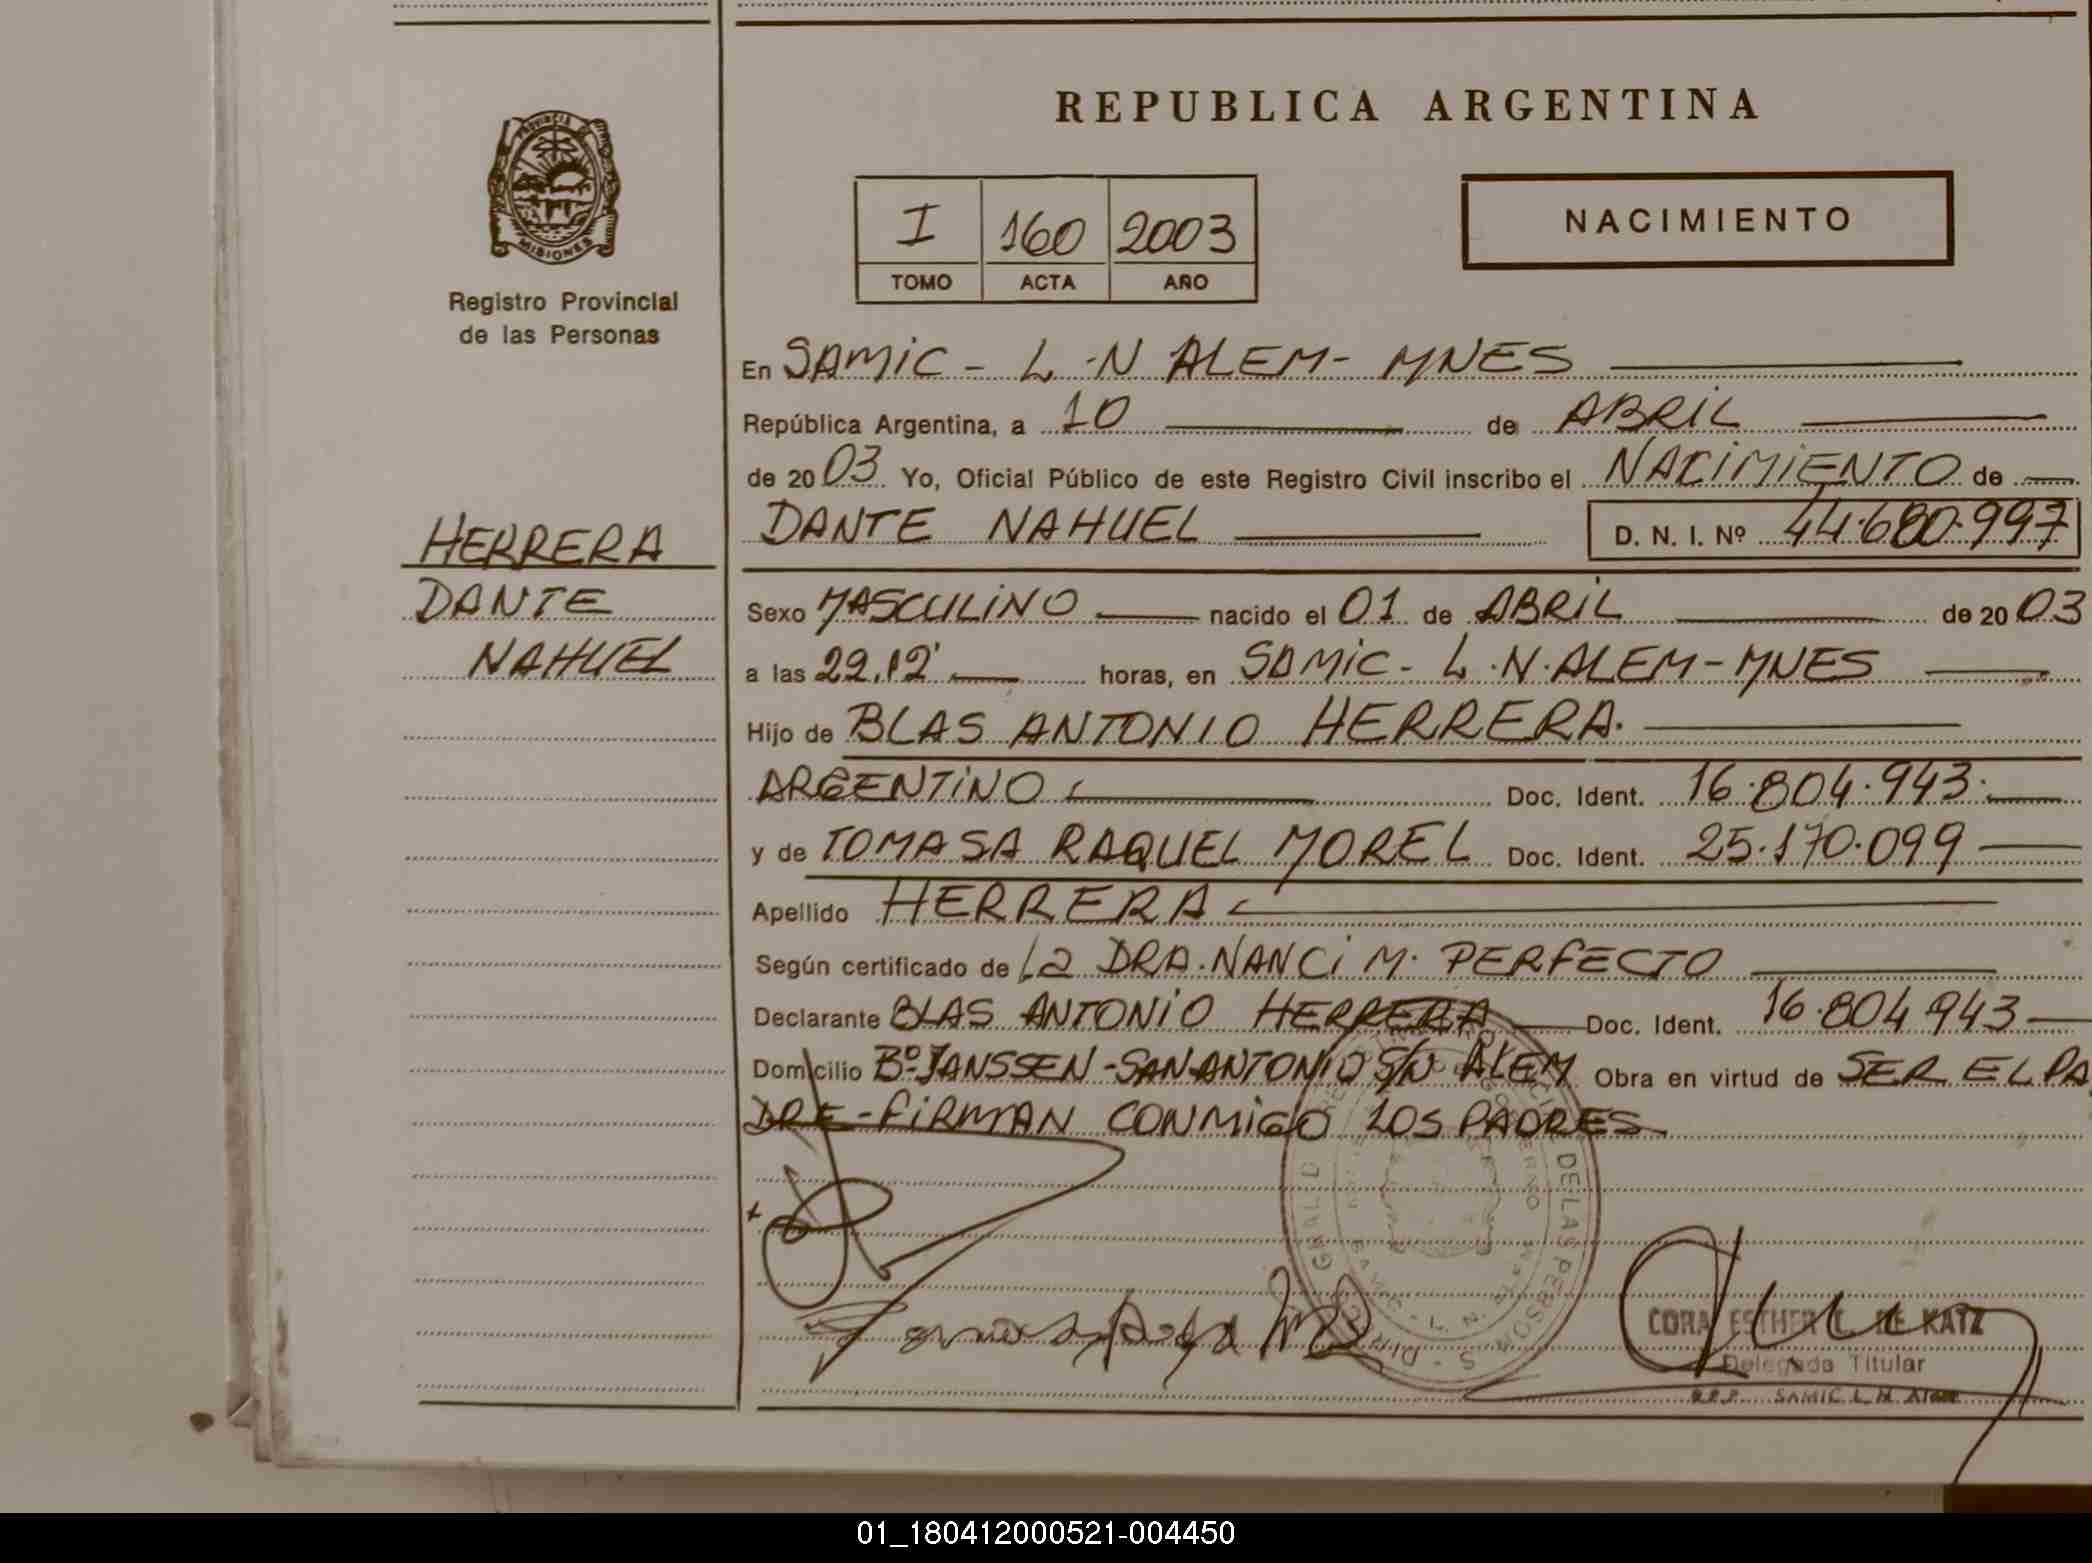 REPUBLICA ARGENTINA
PROVINCIA DE
MISIONES
Registro Provincial
de las Personas
I 160 2003
TOMO ACTA AÑO
NACIMIENTO
En SAMIC - L.N ALEM - MNES
República Argentina, a 10 de ABRIL
de 2003 Yo, Oficial Público de este Registro Civil inscribo el NACIMIENTO de
HERRERA
DANTE
NAHUEL
DANTE NAHUEL D. N. I. Nº 44.680.997
Sexo MASCULINO nacido el 01 de ABRIL de 2003
a las 22.12' horas, en SAMIC - L.N.ALEM - MNES
Hijo de BLAS ANTONIO HERRERA.
ARGENTINO Doc. Ident. 16.804.943.
y de TOMASA RAQUEL MOREL Doc. Ident. 25.170.099
Apellido HERRERA
Según certificado de La DRA. NANCI M. PERFECTO
Declarante BLAS ANTONIO HERRERA Doc. Ident. 16.804 943
Domicilio Bº JANSSEN - SAN ANTONIO S/N ALEM Obra en virtud de SER EL PA
DRE - FIRMAN CONMIGO LOS PADRES
DE LAS PERSONAS
SAMIC - L. N.
CORA ESTHER DE KATZ
Delegada Titular
R.P.P. SAMIC L. N. Alem
01_180412000521-004450